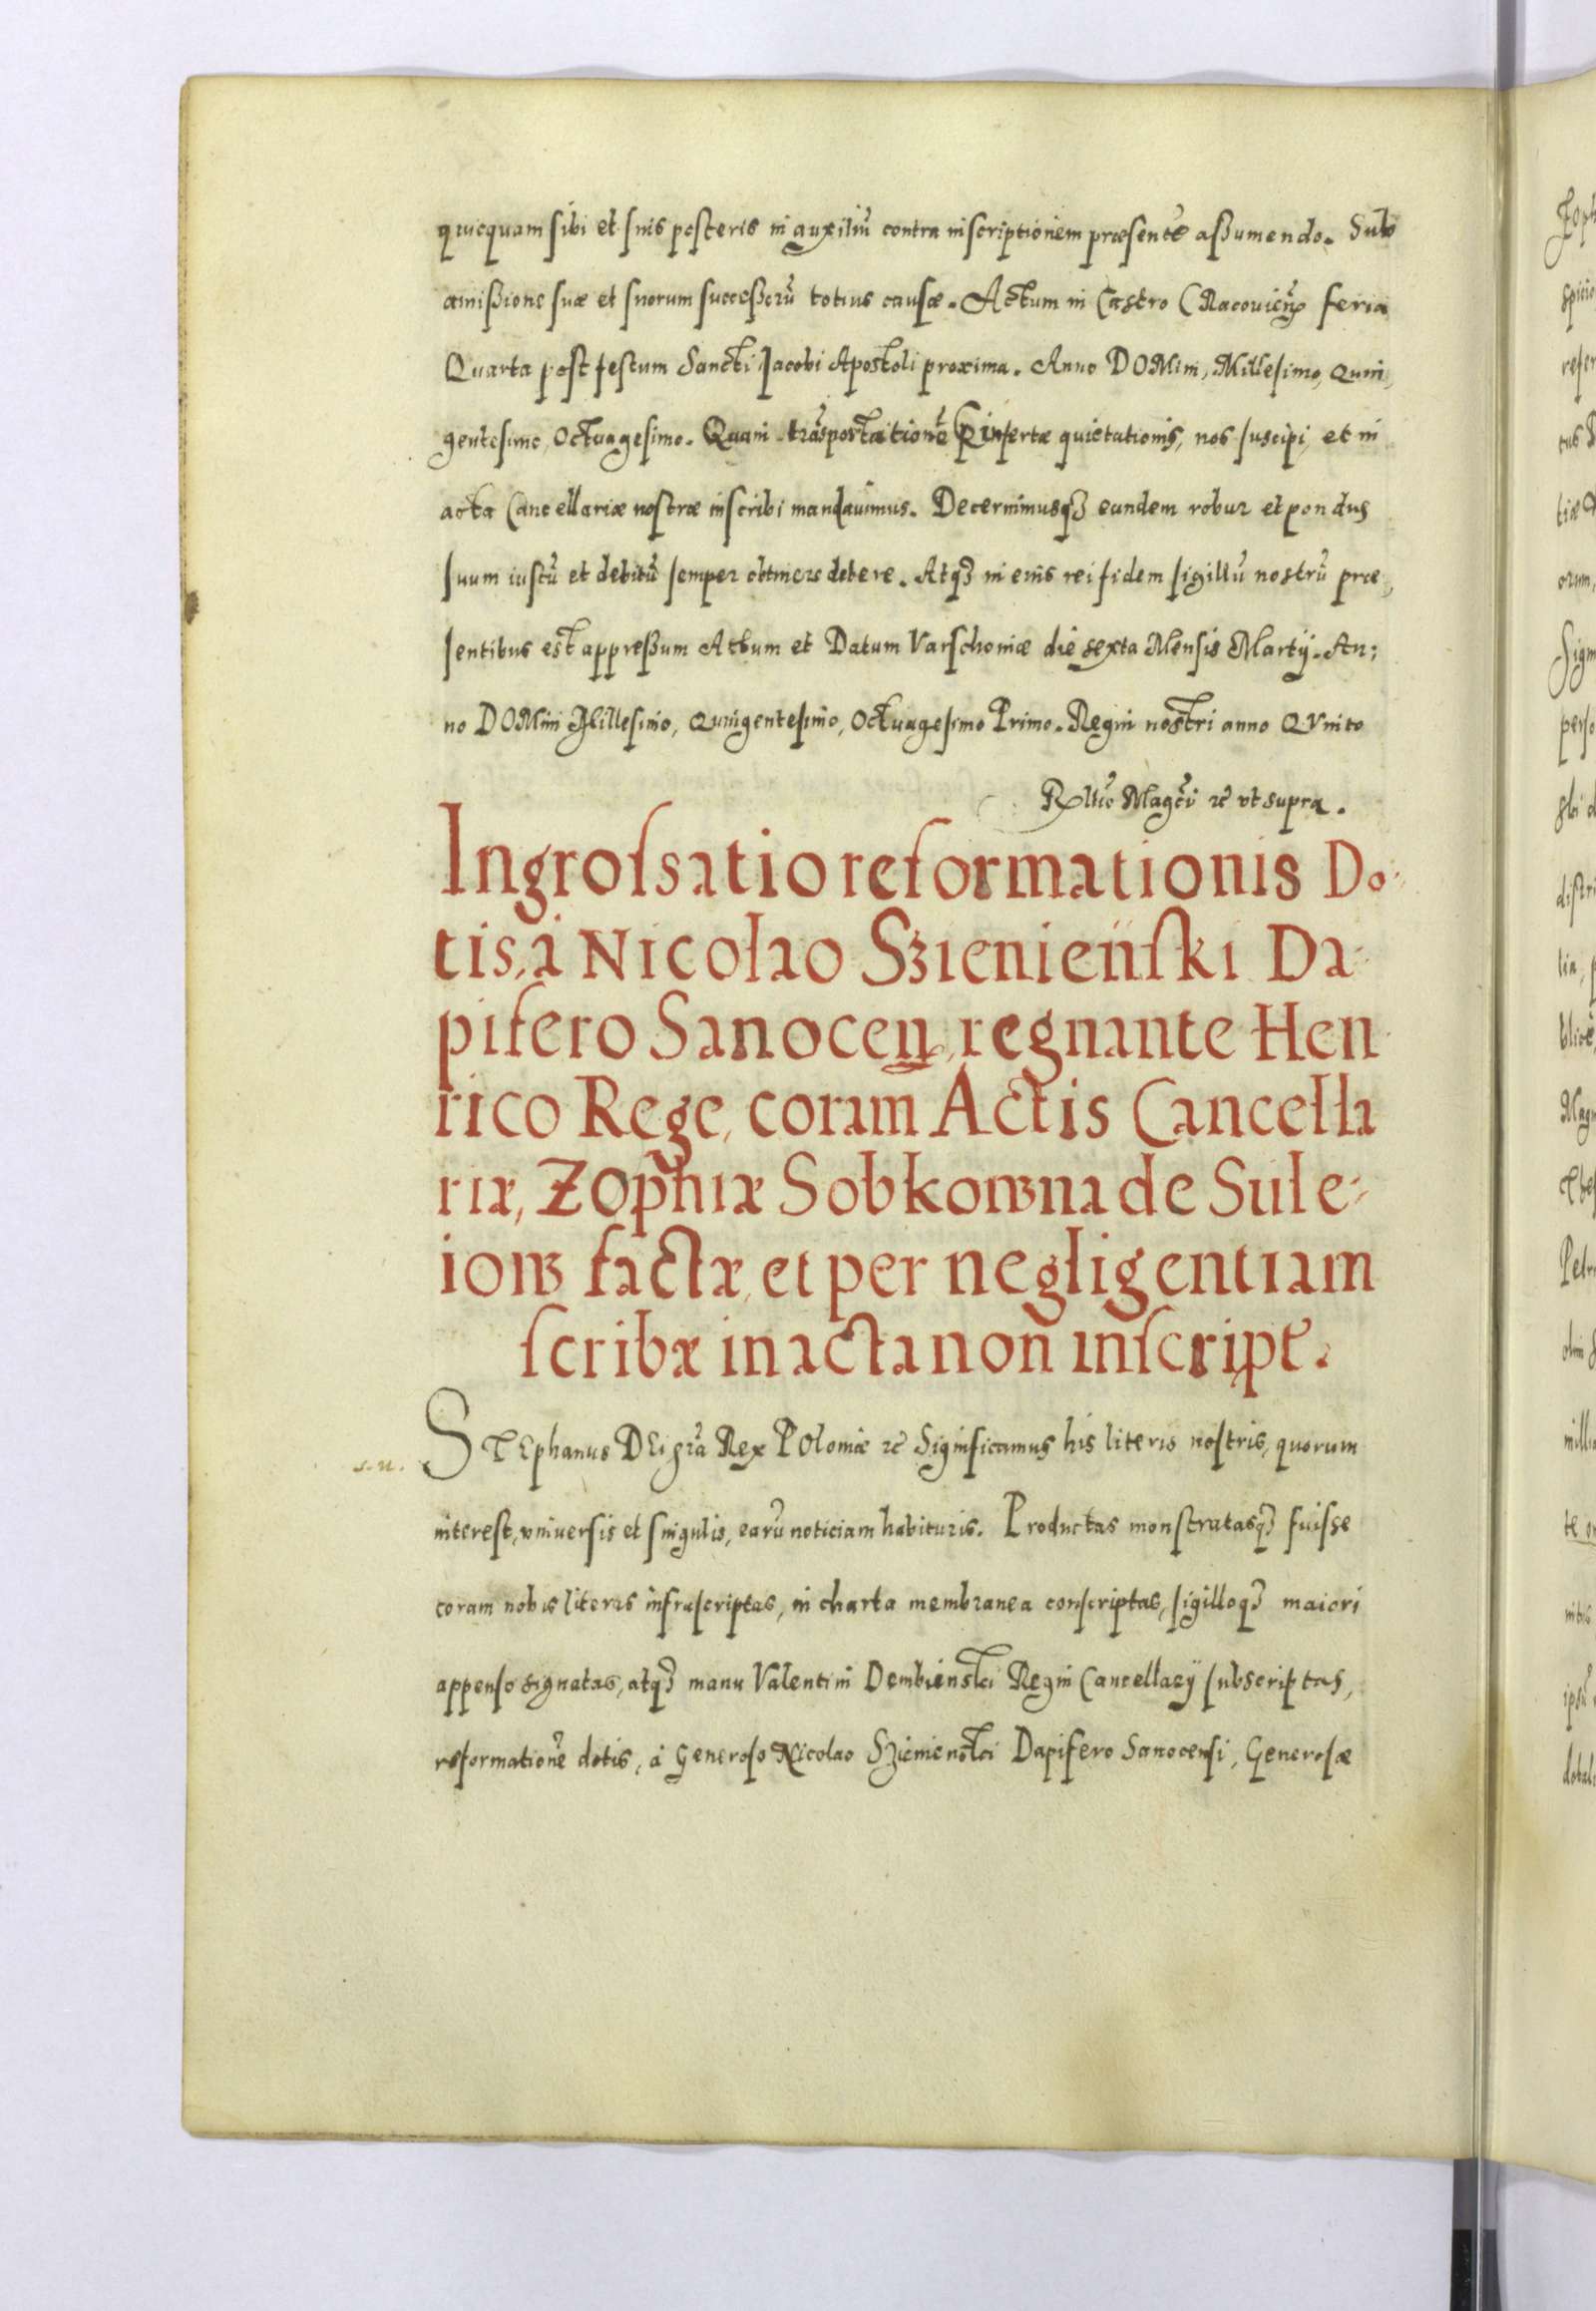 quicquam sibi et suis posteris in auxiliũ contra inscriptionem præsentẽ aßumendo. Sub
amißione suæ et suorum succeßorũ totius causæ. Actum in Castro CRacovieñ feria
Quarta post festum Sancti Jacobi Apostoli proxima. Anno DOMini, Millesimo, Quin,
gentesimo, Octuagesimo. Quam trãsportationẽ insertæ quietationis, nos suscipi, et in
acta Cancellariæ nostræ inscribi mandavimus. Decernimusq3 eundem robur et pondus
suum iustũ et debitũ semper obtinere debere. Atq3 in eius rei fidem sigillũ nostrũ præ,
sentibus est appreßum Actum et Datum Varschoviæ die sexta Mensis Martij. An:
no DOMini Millesimo, Quingentesimo, Octuagesimo Primo. Regni nostri anno QVinto
Rltio Magci rc vt supra.
Ingroſsatio reformationis Do-
tis, à Nicolao Sʒienieńſki Da-
pifero Sanoceñ, regnante Hen
rico Rege, coram Actis Cancella
riæ, Zophiæ Sobkowna de Sule-
iow factæ, et per negligentiam
ſcribæ in acta non inſcript.
STEphanus DEi grã Rex POloniæ rc Significamus his literis nostris, quorum
s.u.
interest, vniversis et singulis, earũ noticiam habituris. Productas monstratasq3 fuisse
coram nobis literas infrascriptas, in charta membranea conscriptas, sigilloq3 maiori
appenso signatas, atq3 manu Valentini Dembienski Regni Cancellarij subscriptas,
reformationẽ dotis, à Generoso Nicolao Szienienski Dapifero Sanocensi, Generosæ